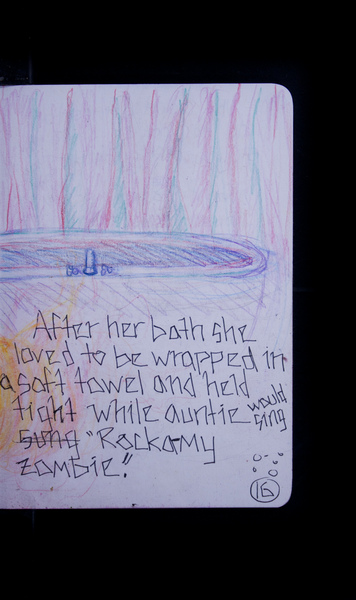 After her bath she
loved to be wrapped in
a soft towel and held
tight while auntie would sing
sung "Rockamy
zombie."
16